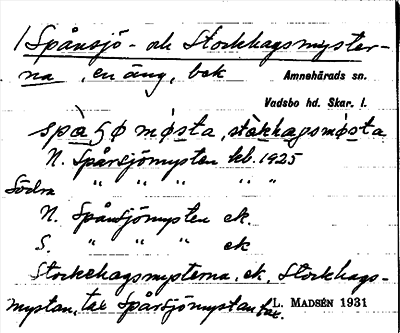 1 Spånsjö- och Stockhagsmyster-
na, en äng, bck
Amnehärads sn.
Vadsbo hd. Skar. l.
spàʒø mø̀sta, stòkhagsmø̀sta
N. Spårsjömysten kb. 1925
Södra " " " " "
N. Spånsjömysten ek.
S. " " " ek
Stockehagsmysterna, ek, Stockhags-
mystan, tax Spårsjömystan tax.
L. MADSÉN 1931